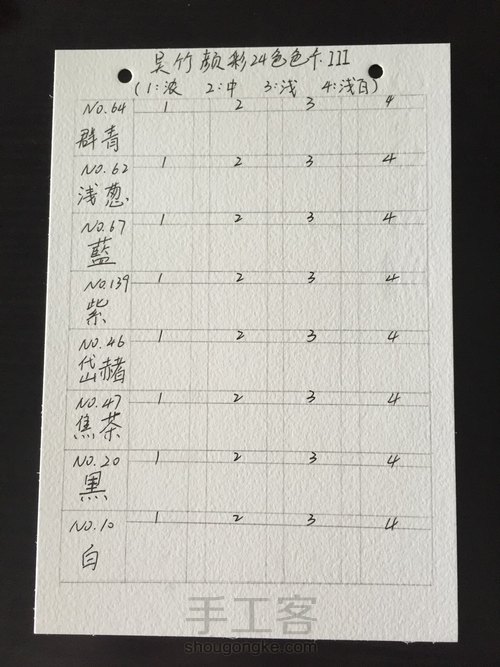 吴竹颜彩24色色卡III
(1:浓 2:中 3:浅 4:浅白)
No.64 1 2 3 4
群青
No.62 1 2 3 4
浅葱
No.67 1 2 3 4
藍
No.139 1 2 3 4
紫
No.46 1 2 3 4
岱赭
No.47 1 2 3 4
焦茶
No.20 1 2 3 4
黒
No.10 1 2 3 4
白
手工客
shougongke.com